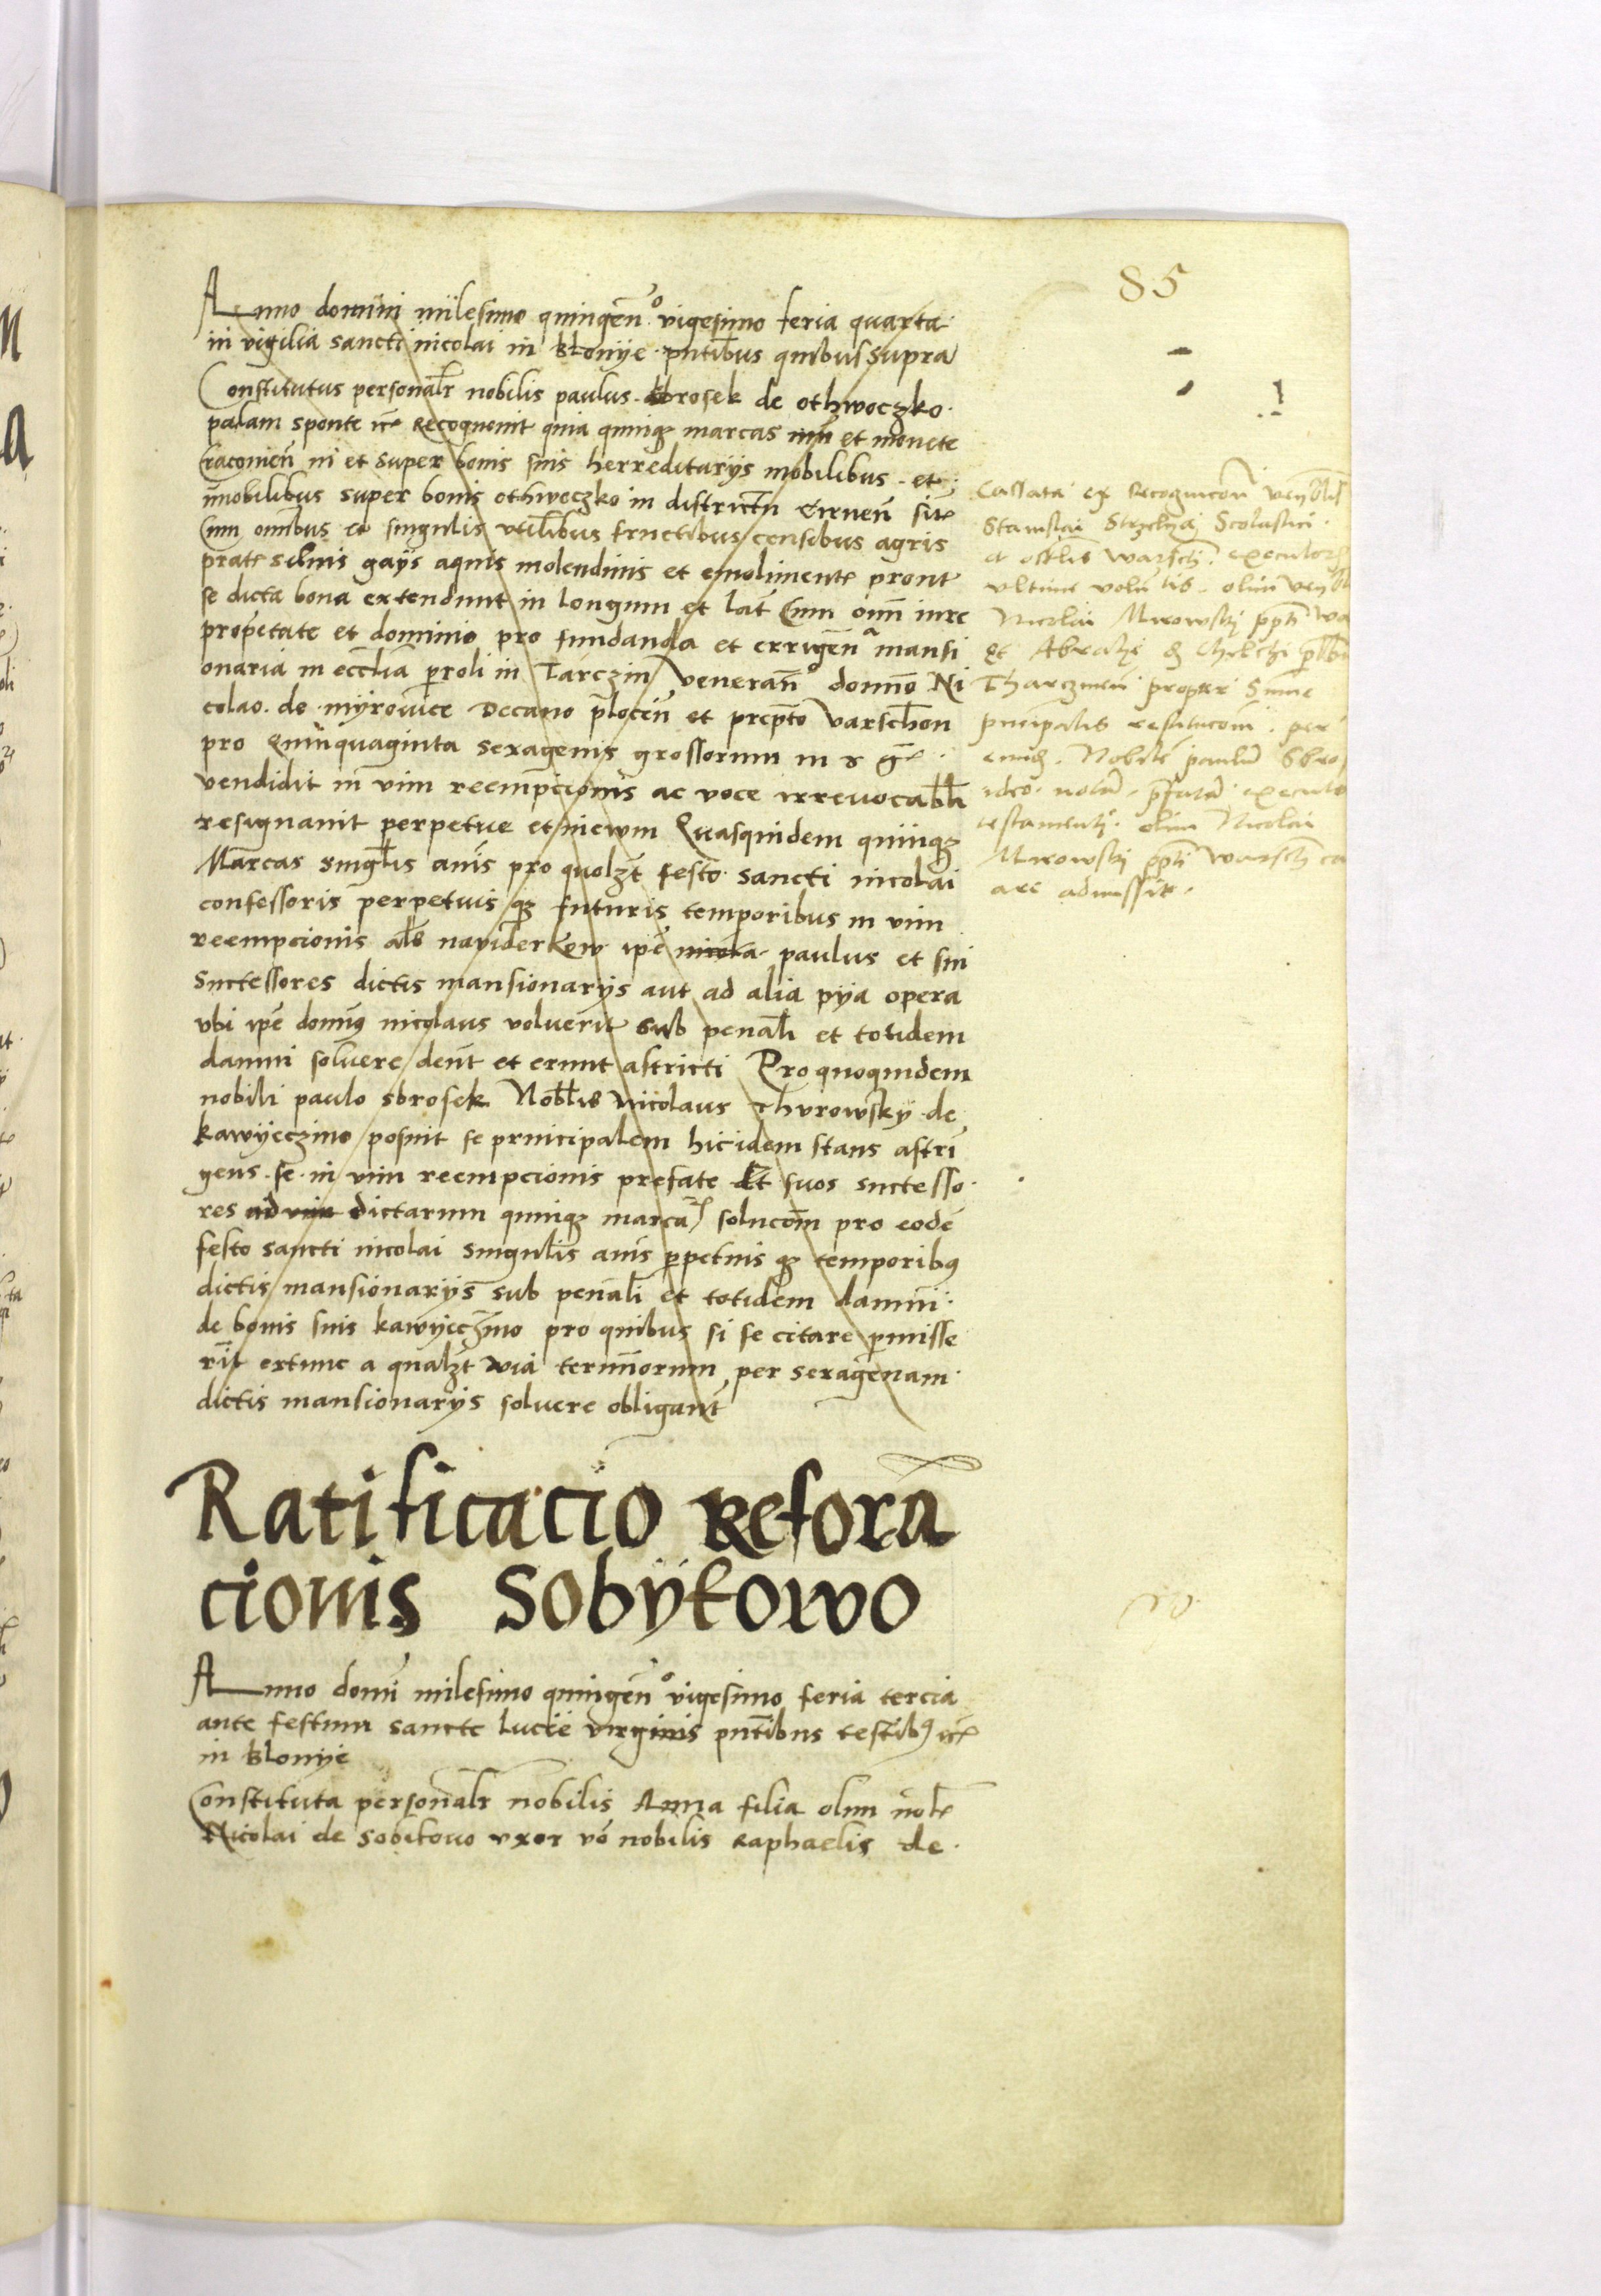 85
Anno domini milesimo quingen̄º vigesimo feria quarta
in vigilia sancti nicolai in blonÿe pntibus quibus supra
Constitutus personalr nobilis paulus sbrosek de othwoczko
palam sponte etc recognouit quia quinqz marcas et monete
in et super bonis suis herreditarÿs mobilibus et
im̄obilibus super bonis othwoczko in districtu Cirnen̄ site
Cum omībus et singulis vtilibus fructibus censibus agris
prate siluis gaÿs aquis molendinis et emolimente prout
se dicta bona extendunt in longum et lat̄ Cum om̄i iure
propetate et dominio pro fundanda et errigen̄ª mansi
onaria in eccl̄ia p̄roli in Tarczin veneran̄º domn̄o Ni
colao de mÿrowice Decano plocen̄ et prep̄to varschon
pro Quinquaginta sexagenis grossorum in
vendidit in vim reempcionis ac voce irreuocabl̄i
resignauit perpetue et in ewm Quasquidem quinqz
Marcas singl̄is an̄is pro quolz̄t festo sancti nicolai
confessoris perpetuis qz futuris temporibus in vim
reempcionis al̄s naviderkew ip̄e paulus et sui
Suctessores dictis mansionarÿs aut ad alia pÿa opera
vbi ip̄e domn̄9 nicolaus voluerit sub penal̄i et totidem
damni soluere den̄t et erunt astricti Pro quoquidem
nobili paulo sbrosek Nobl̄is Nicolaus Thvrowskÿ de
kawÿeczino posuit se principalem hic idem stans astri
gens se in vim reempcionis prefate Et suos suctesso
res ad vim dictarum quinqz marcaꝝ solucom̄ pro eodē
festo sancti nicolai singulis an̄is p̄petuis qz temporib9
dictis mansionarÿs sub penal̄i et totidem damni
de bonis suis kawÿeczÿno pro quibus si se citare p̄misse
rīt extunc a qualz̄t wia terminorum per sexagenam
dictis mansionarÿs soluere obligant̄
Cassata ex Recognicon̄ ven̄blis
Stanislai Strzelyaÿ Scolastici
et offlis warsch. executor
vltime volun̄tis olim ven
Nicolai Mrowskÿ ppti wa
et
Tharczinen̄ propter Sum̄e
principalis restitucom̄ per
eundē Nobilē paulū Sbro
ideo executo
testamenti olim Nicolai
Mrowskÿ ppti warsch ca
are admissit
Ratificacio Reforā
cionis Sobÿkowo
Anno domī milesimo quingen̄º vigesimo feria tercia
ante festum sancte lucie virginis pnt̄ibus testib9 etc
in blonÿe
Constituta personalr nobilis Anna filia olim nōbl
Nicolai de sobikouo vxor vō nobilis Raphaelis de